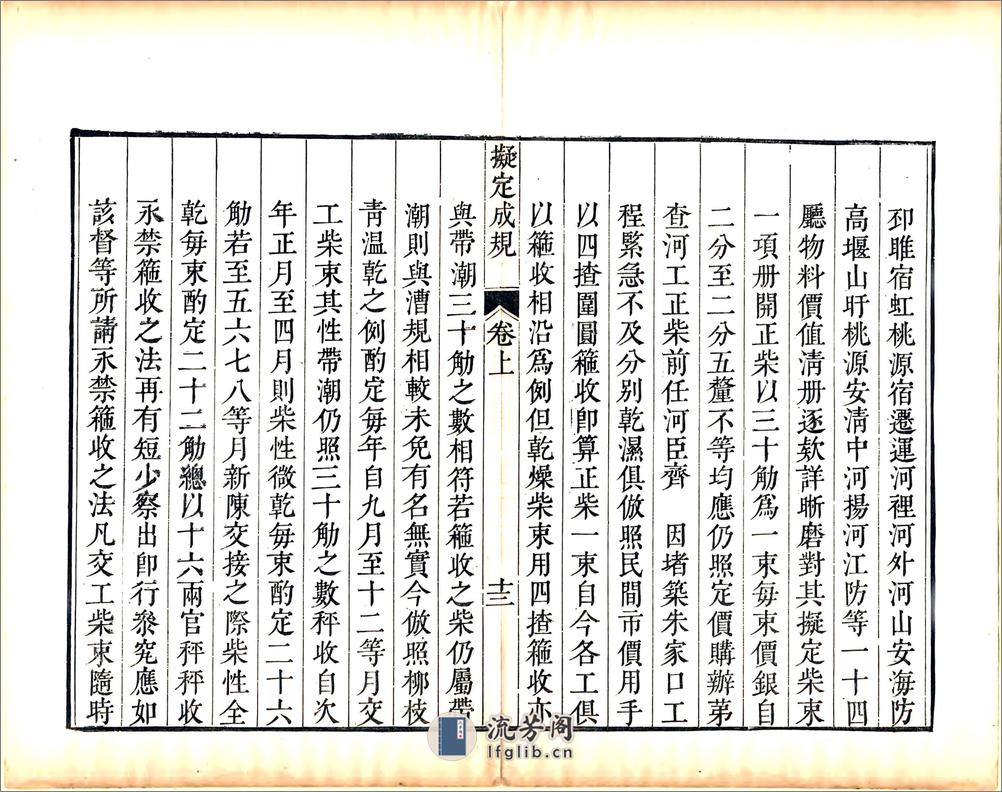 邳睢宿虹桃源宿遷運河裡河外河山安海防
高堰山盱桃源安清中河揚河江防等一十四
廳物料價值清册逐欵詳晰磨對其擬定柴束
一項册開正柴以三十觔爲一束每束價銀自
二分至二分五釐不等均應仍照定價購辦第
查河工正柴前任河臣齊 因堵築朱家口工
程緊急不及分别乾濕俱倣照民間市價用手
以四揸圍圓箍收卽算正柴一束自今各工俱
以箍收相沿爲例但乾燥柴束用四揸箍收亦
擬定成規 卷上 十三
與帶潮三十觔之數相符若箍收之柴仍屬帶
潮則與漕規相較未免有名無實今倣照柳枝
青温乾之例酌定每年自九月至十二等月交
工柴束其性帶潮仍照三十觔之數秤收自次
年正月至四月則柴性微乾每束酌定二十六
觔若至五六七八等月新陳交接之際柴性全
乾每束酌定二十二觔總以十六兩官秤秤收
永禁箍收之法再有短少察出卽行叅究應如
該督等所請永禁箍收之法凡交工柴束隨時
流芳阁
lfglib.cn